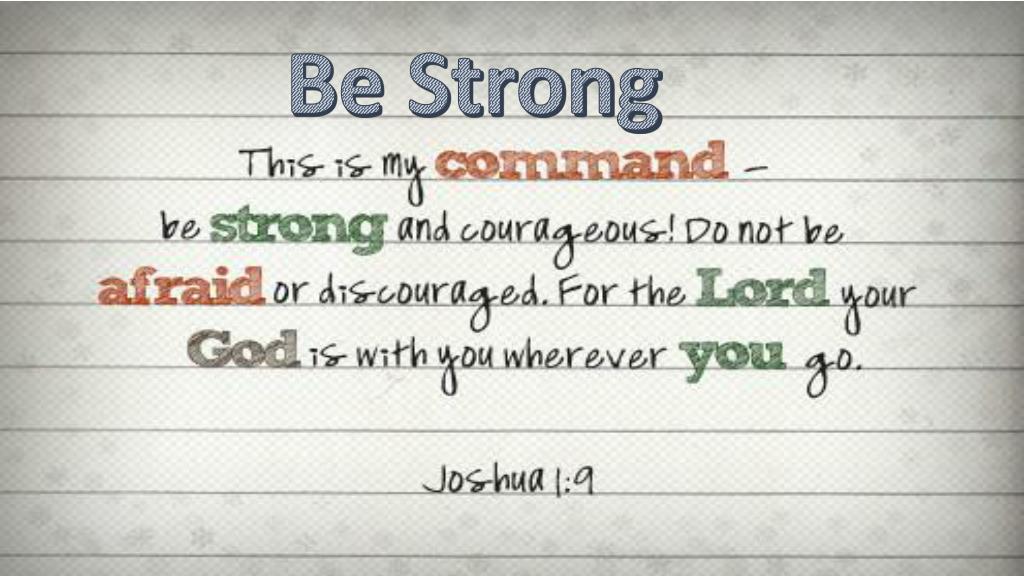 Be Strong
This is my command –
be strong and courageous! Do not be
afraid or discouraged. For the Lord your
God is with you wherever you go.
Joshua 1:9